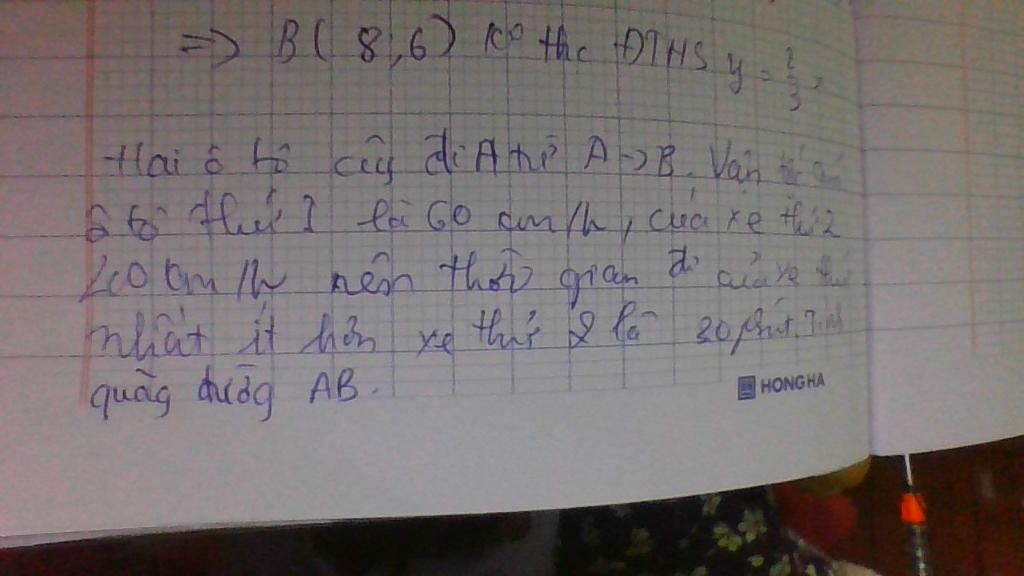 => B( 8,6) ko thc ĐTHS y = 2/3
Hai ô tô cùg đi A từ A -> B. Vận
ô tô thứ 1 là 60 km/h, của xe thứ 2
40 km/h nên thời gian đi của xe thứ
nhất ít hơn xe thứ 2 là 30 phút. Tính
quãg đườg AB.
HONG HA